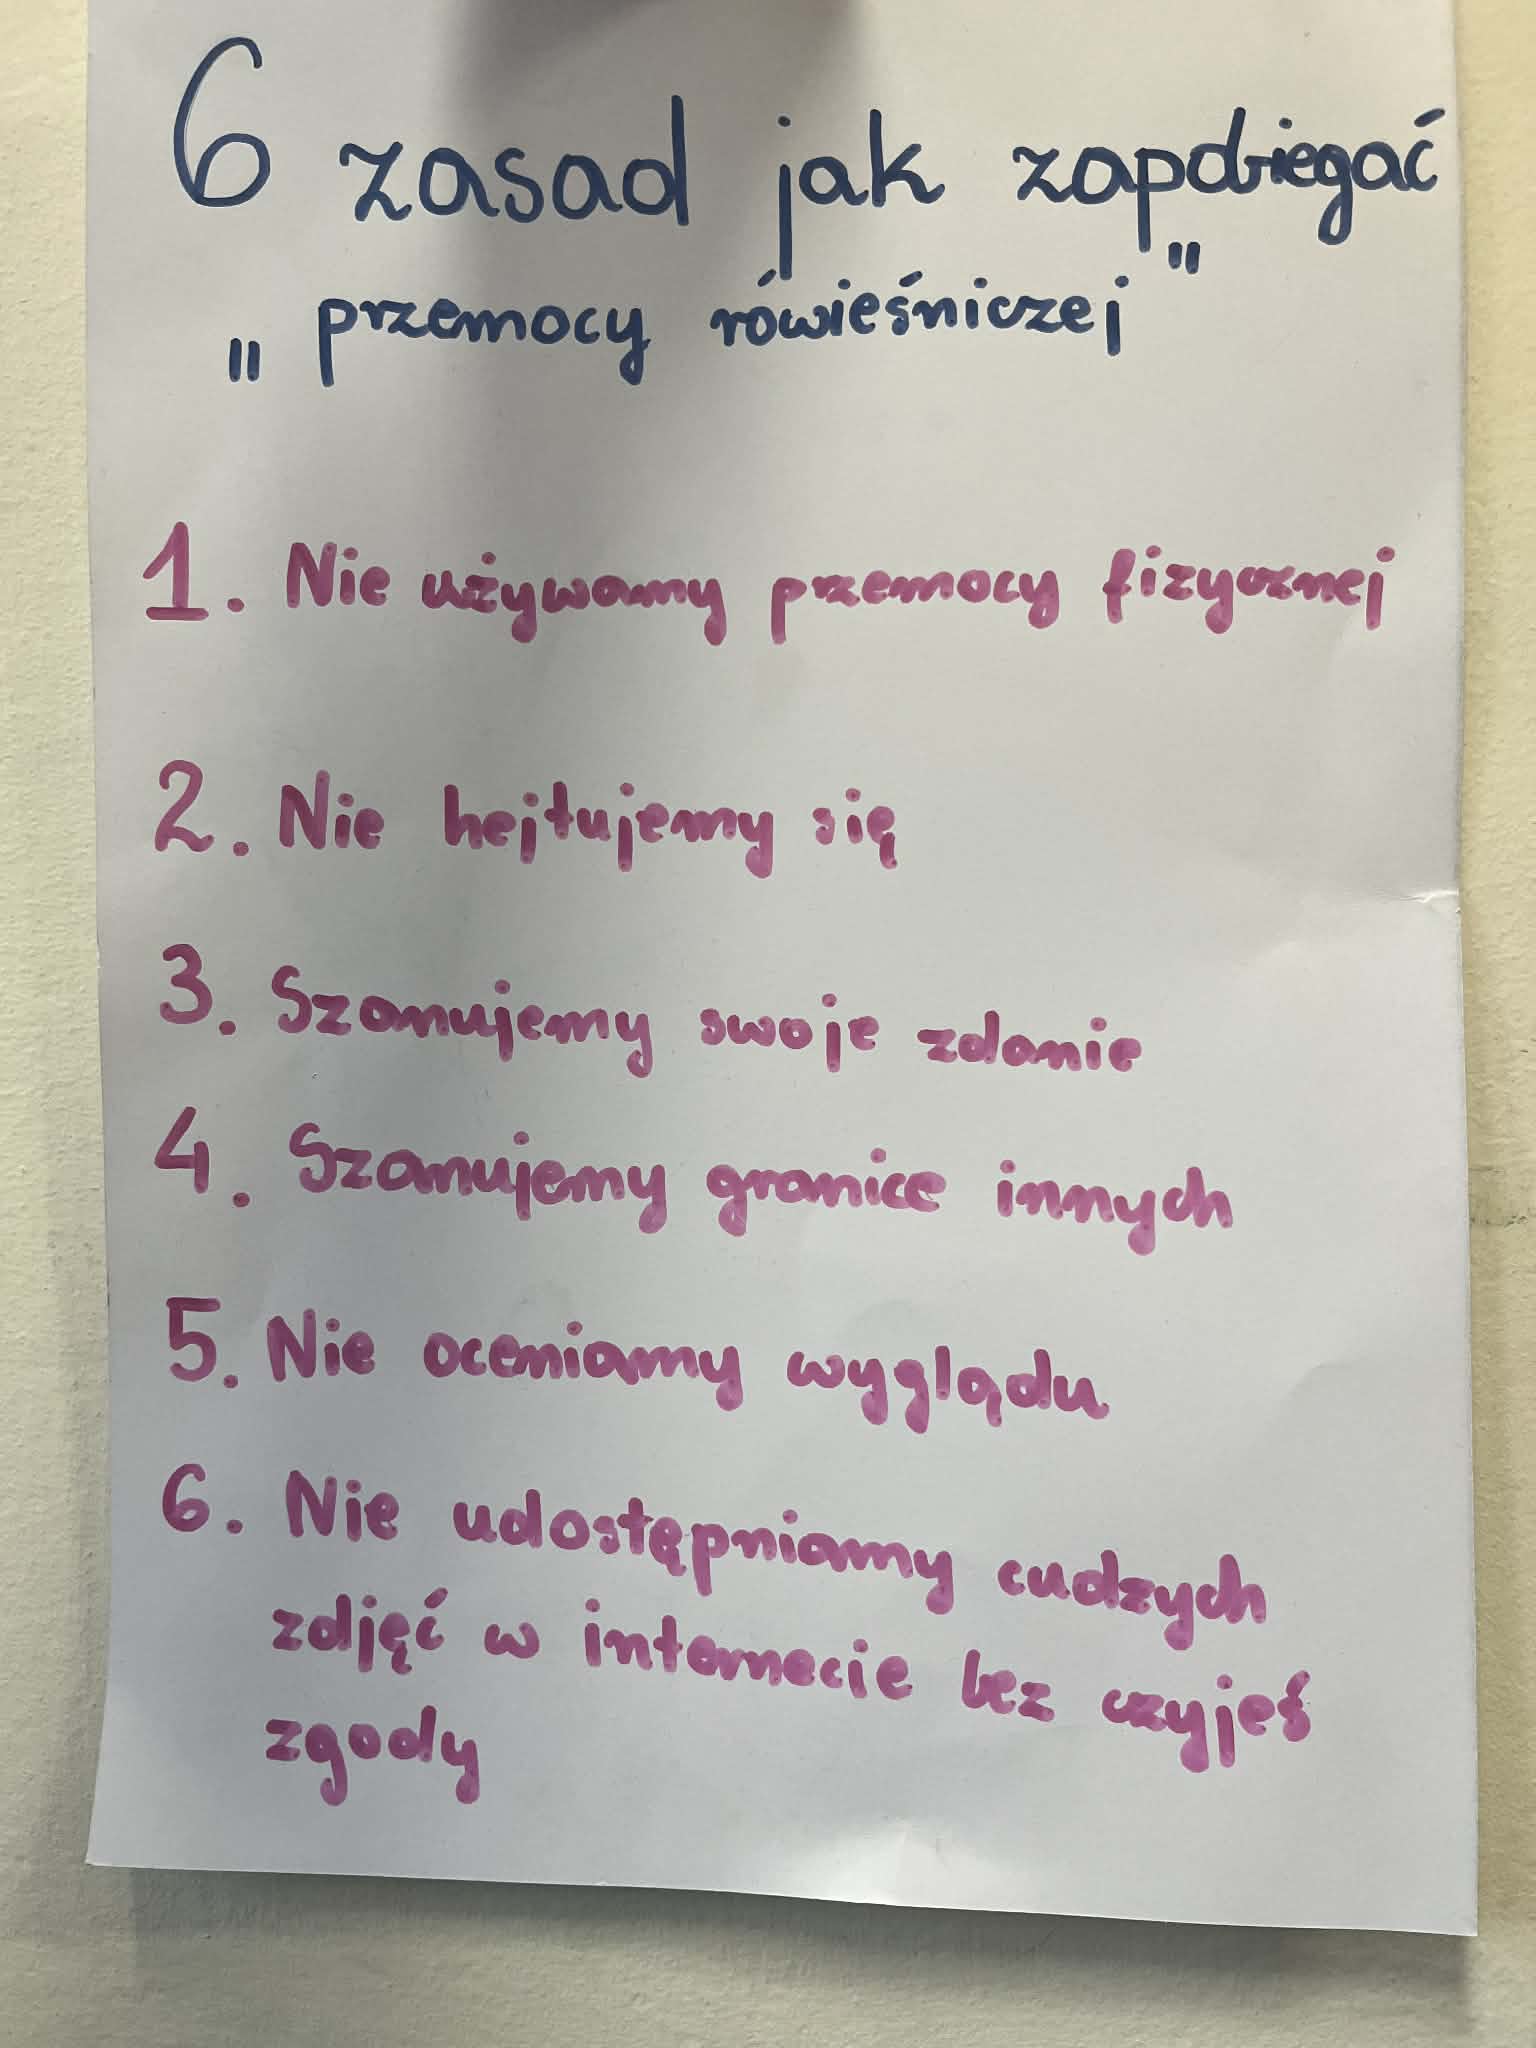 6 zasad jak zapobiegać
„przemocy rówieśniczej"
1. Nie używamy przemocy fizycznej
2. Nie hejtujemy się
3. Szanujemy swoje zdanie
4. Szanujemy granice innych
5. Nie oceniamy wyglądu
6. Nie udostępniamy cudzych
zdjęć w internecie bez czyjeś
zgody